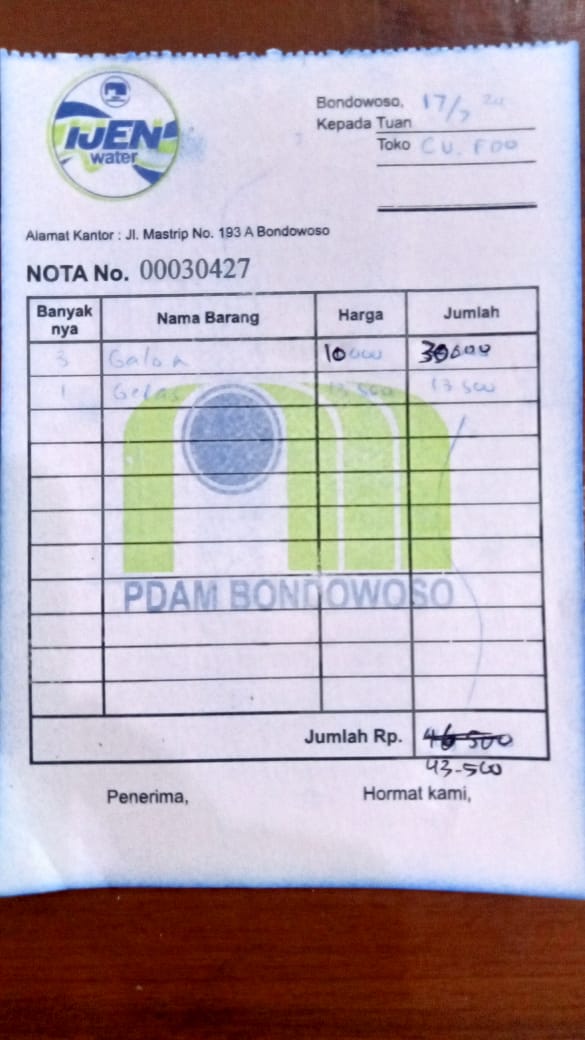 IJEN
water
Bondowoso, 17/7 24
Kepada Tuan
Toko CV. FDO
Alamat Kantor : Jl. Mastrip No. 193 A Bondowoso
NOTA No. 00030427
Banyak nya Nama Barang Harga Jumlah
3 Galon 10000 30000
1 Gelas 13.500 13.500
PDAM BONDOWOSO
Jumlah Rp. 46 500
43-500
Penerima, Hormat kami,